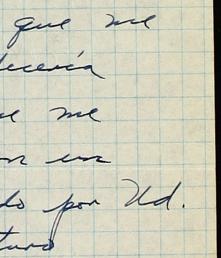 que me
decería
ue me
on un
do por Ud.
turo